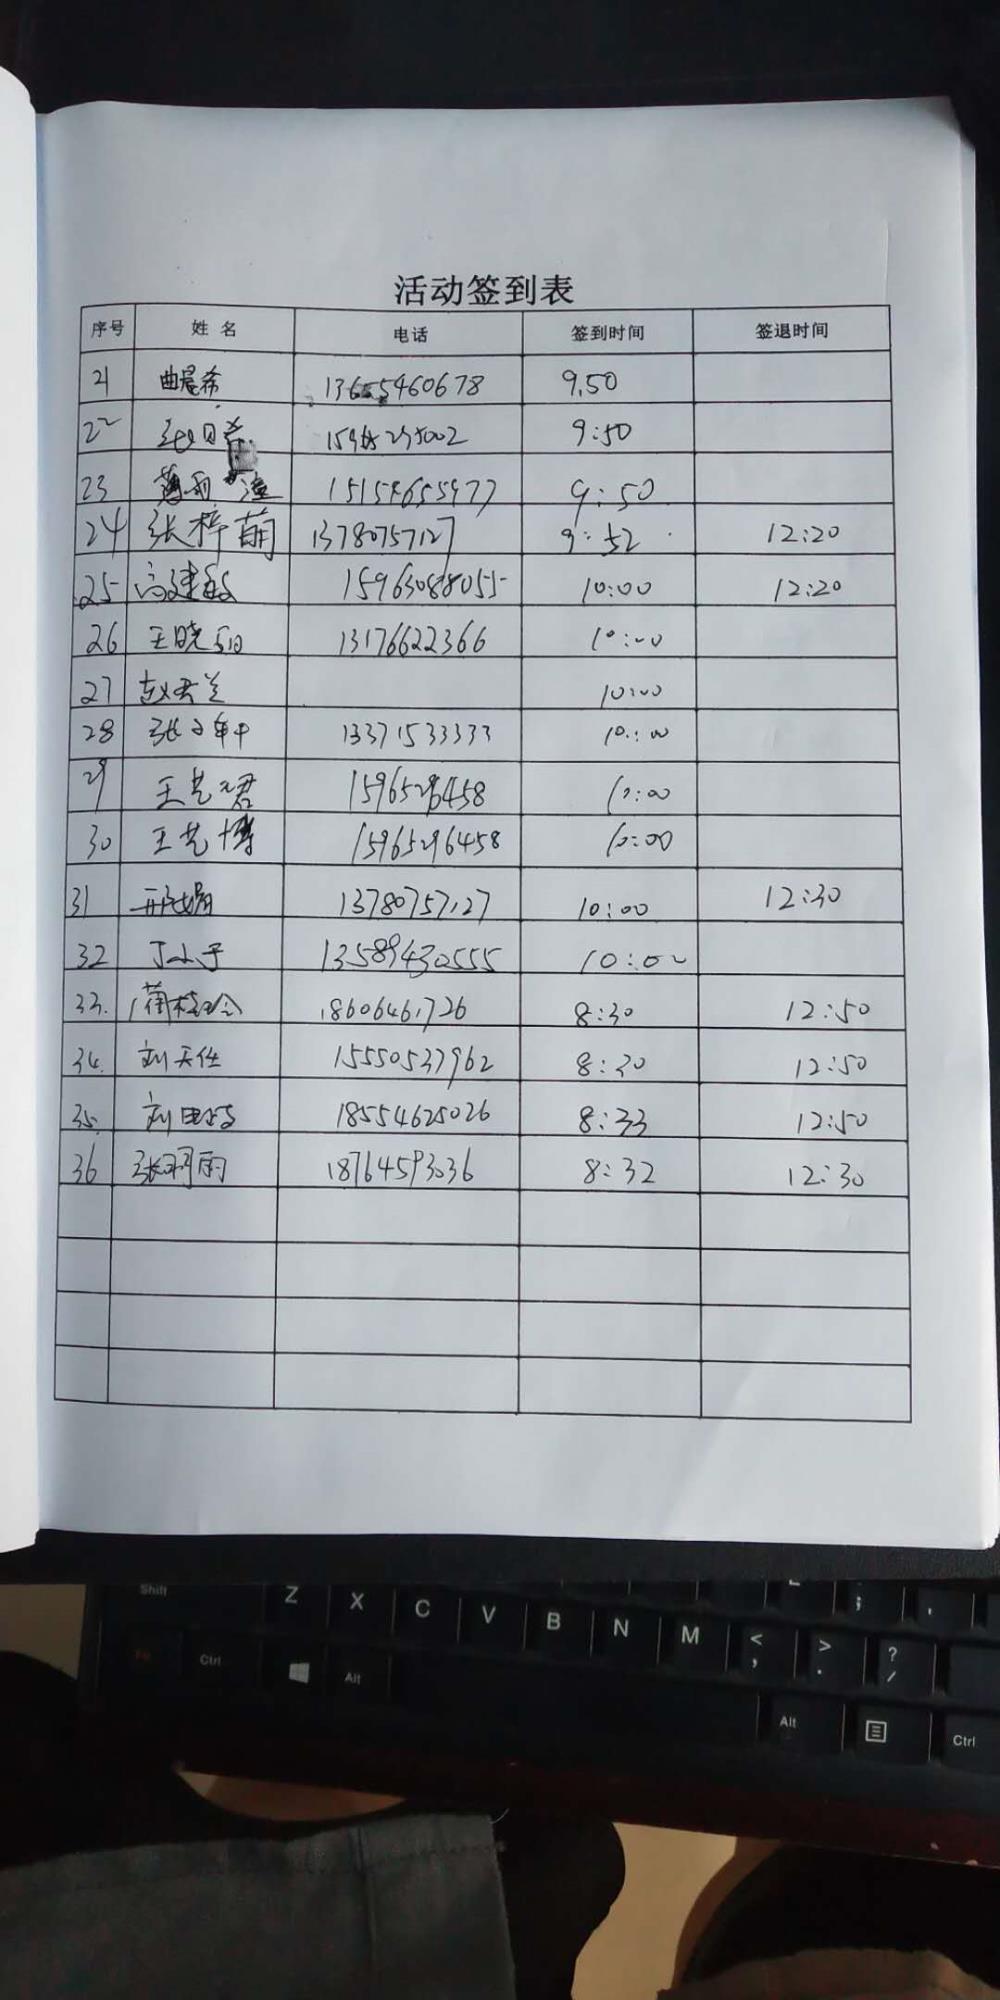 活动签到表
序号 姓名 电话 签到时间 签退时间
21 曲晨希 9.50
22 9:50
23 薄雨 15154655977 9:50
24 张梓萌 13780757127 9:52 12:20
25 高建敏 15963088055 10:00 12:20
26 王晓 13176622366 10:00
27 赵云兰 10:00
28 张 13371533333 10:00
29 王艺君 10:00
30 王艺博 15965296458 10:00
31 邢娟 13780757127 10:00 12:30
32 丁小子 13589430555 10:00
33. 蔺桂玲 18606461726 8:30 12:50
34. 刘天任 15550537962 8:30 12:50
35. 刘 18554625026 8:33 12:50
36 张雨 18764593036 8:32 12:30
Shift Z X C V B N M < , > . ? /
Fn Ctrl Alt Alt Ctrl